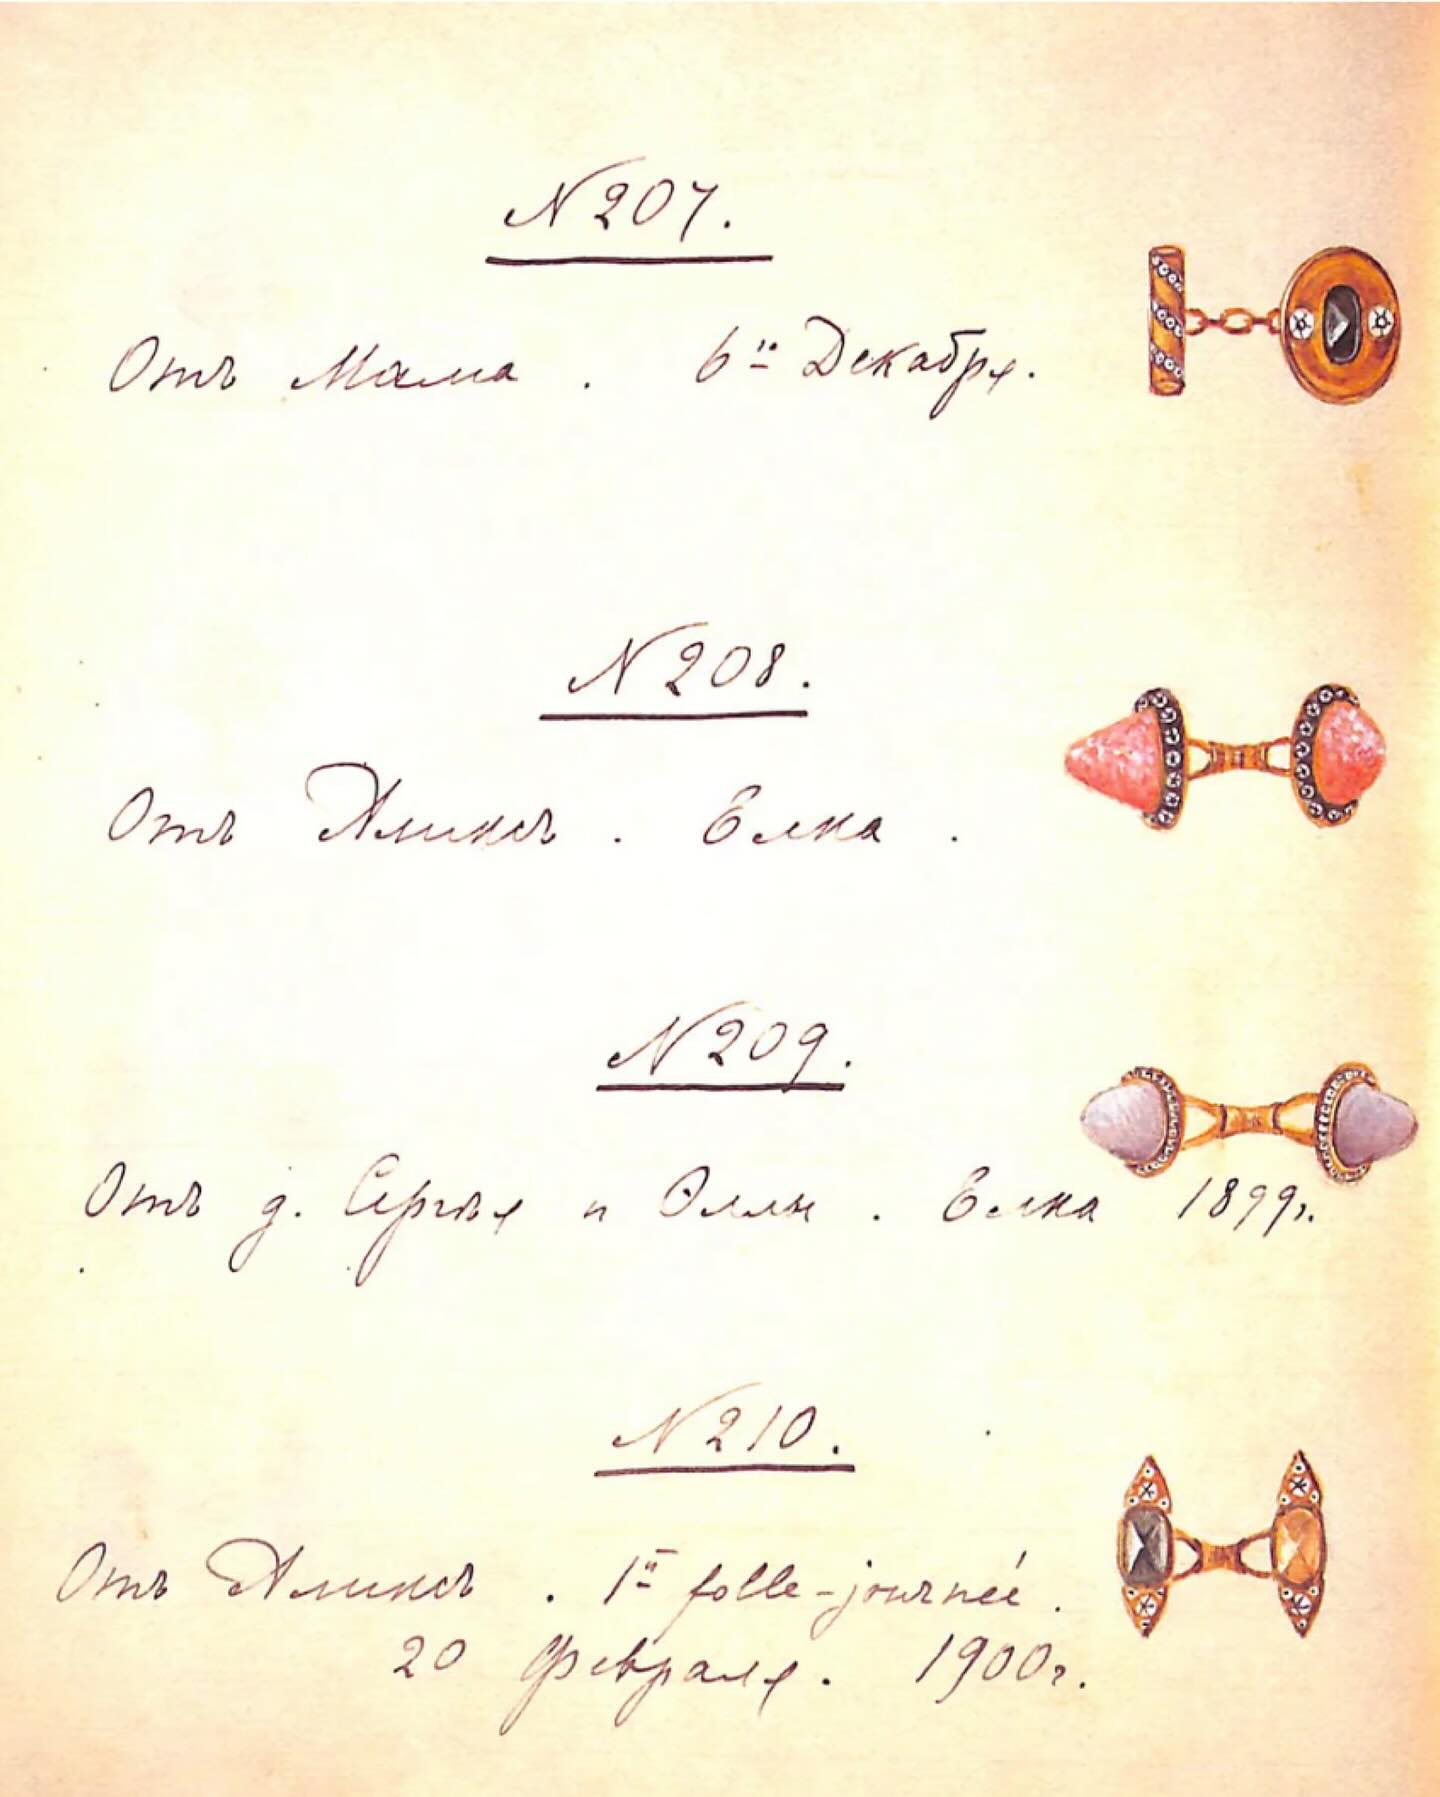 N 207.
Отъ Мама. 6го Декабря.
N 208.
Отъ Аликсъ. Елка.
N 209.
Отъ д. Сергѣя и Эллы. Елка 1899г.
N 210.
Отъ Аликсъ. 1я folle-journée.
20 Февраля. 1900г.